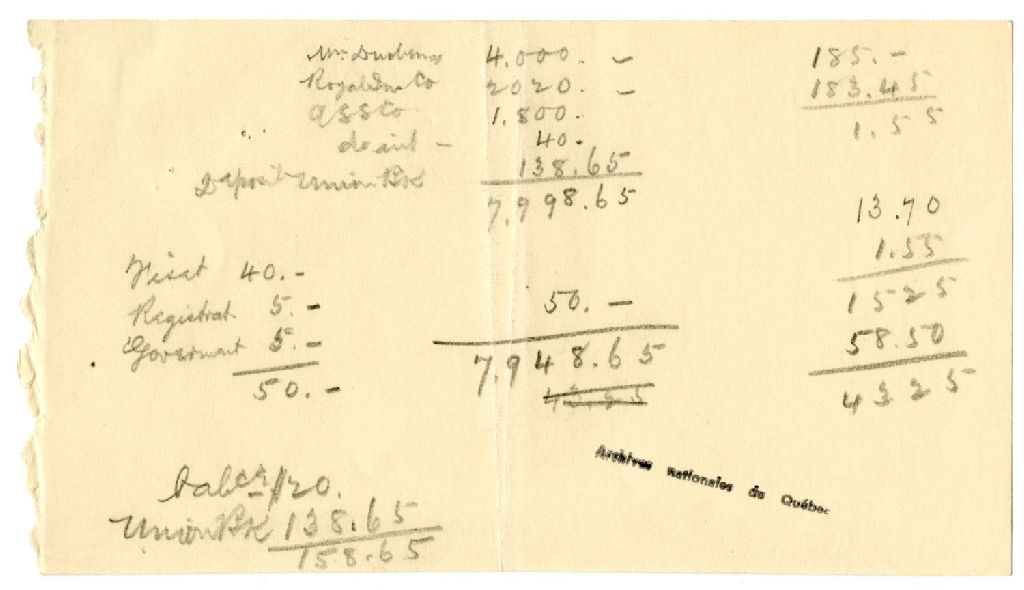 Mr. 4.000. –
Royal Ins Co 2020. –
QSSCo 1.800.
do 40.
Deposit Union Bk 138.65
7.998.65
40.–
Registrat. 5.–
Government 5.–
50.–
50.–
7.948.65
43.25
185.–
183.45
1.55
13.70
1.55
1525
58.50
4325
120.
Union Bk 138.65
158.65
Archives nationales du Québec